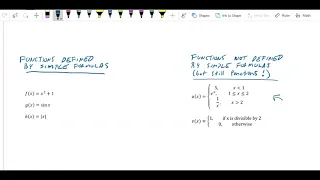 Draw
Ink to Shape
Ink to Math
FUNCTIONS DEFINED
BY SIMPLE FORMULAS
f(x) = x² + 1
g(x) = sin x
h(x) = |x|
FUNCTIONS NOT DEFINED
BY SIMPLE FORMULAS
(but still functions!)
5, x < 1
u(x) = { x², 1 ≤ x ≤ 2
1/x, x > 2
v(x) = { 1, if x is divisible by 2
0, otherwise